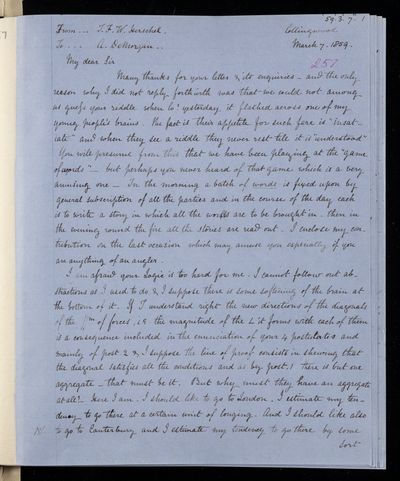 59.3.7. 1
From... J. F. W. Herschel. Collingwood
To... A. DeMorgan... March 7. 1859.
257
My dear Sir
Many thanks for your letter & its enquiries - and the only
reason why I did not reply forthwith was that we could not among
us guess your riddle when lo! yesterday, it flashed across one of my
young people's brains. The fact is their appetite for such fare is "insat-
iate" and when they see a riddle they never rest till it is "understood"
You will presume from this that we have been playing at the "game
of words" - but perhaps you never heard of that game which is a very
amusing one - In the morning a batch of words is fixed upon by
general subscription of all the parties and in the course of the day each
is to write a story in which all the words are to be brought in. then in
the evening round the fire all the stories are read out. I enclose my con-
tribution on the last occasion which may amuse you especially if you
are anything of an angler.
I am afraid your Logic is too hard for me. I cannot follow out ab-
stractions as I used to do & I suppose there is some softening of the brain at
the bottom of it. If I understand right the new directions of the diagonals
of the of forces, i.e. the magnitude of the L it forms with each of them
is a consequence included in the enunciation of your 4 postulates and
mainly of post 2 &, I suppose the line of proof consists in shewing that
the diagonal satisfies all the conditions and as by post. 1 there is but one
aggregate - that must be it. But why must they have an aggregate
at all? - Here I am. I should like to go to London. I estimate my ten-
dency to go there at a certain wint of longing. And I should like also
to go to Canterbury and I estimate my tendency to go there by some
sort